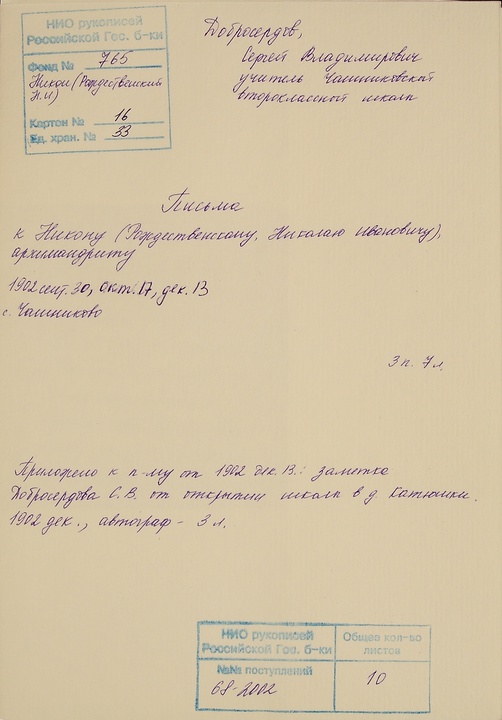 НИО рукописей
Российской Гос. б-ки
Фонд № 765
Никон (Рождественский
Н.И)
Картон № 16
Ед. хран. № 33
Добросердов,
Сергей Владимирович
учитель Чашниковской
второклассной школы
Письма
к Никону (Рождественскому, Николаю Ивановичу),
архимандриту
1902 сент. 30, окт. 17, дек. 13
с. Чашниково
3 п. 7 л.
Приложено к п-му от 1902 дек. 13.: заметка
Добросердова С.В. от открытии школы в д Катюшки.
1902 дек., автограф - 3 л.
НИО рукописей
Российской Гос. б-ки
№№ поступлений
68-2002
Общее кол-во
листов
10